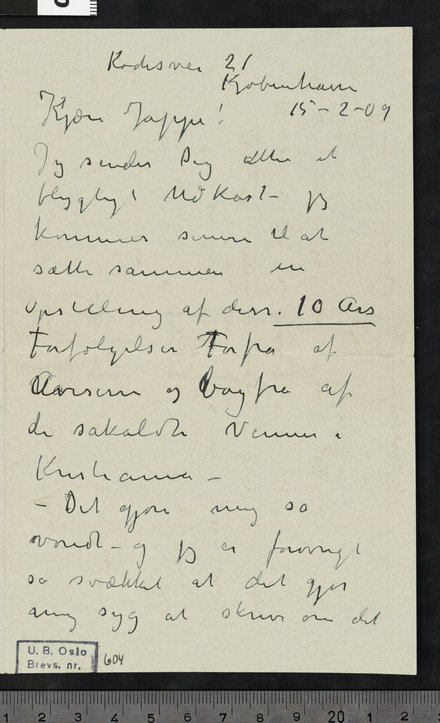 Kochsvei 21
Kjøbenhavn
15-2-09
Kjære Jappe!
Jeg sender Dig atter et
flygtigt Udkast – jeg
kommer senere til at
sætte sammen en
opstilling af diss. 10 Års
Forfølgelser Forfra af
Aviserne og bagfra af
de såkaldte Venner i
Kristiania –
– Det gjør mig så
vondt – og jeg er forøvrigt
så svækket at det gjør
mig syg at skrive om det
U. B. Oslo
Brevs. nr. 604
1 2 3 4 5 6 7 8 9 20 1 2